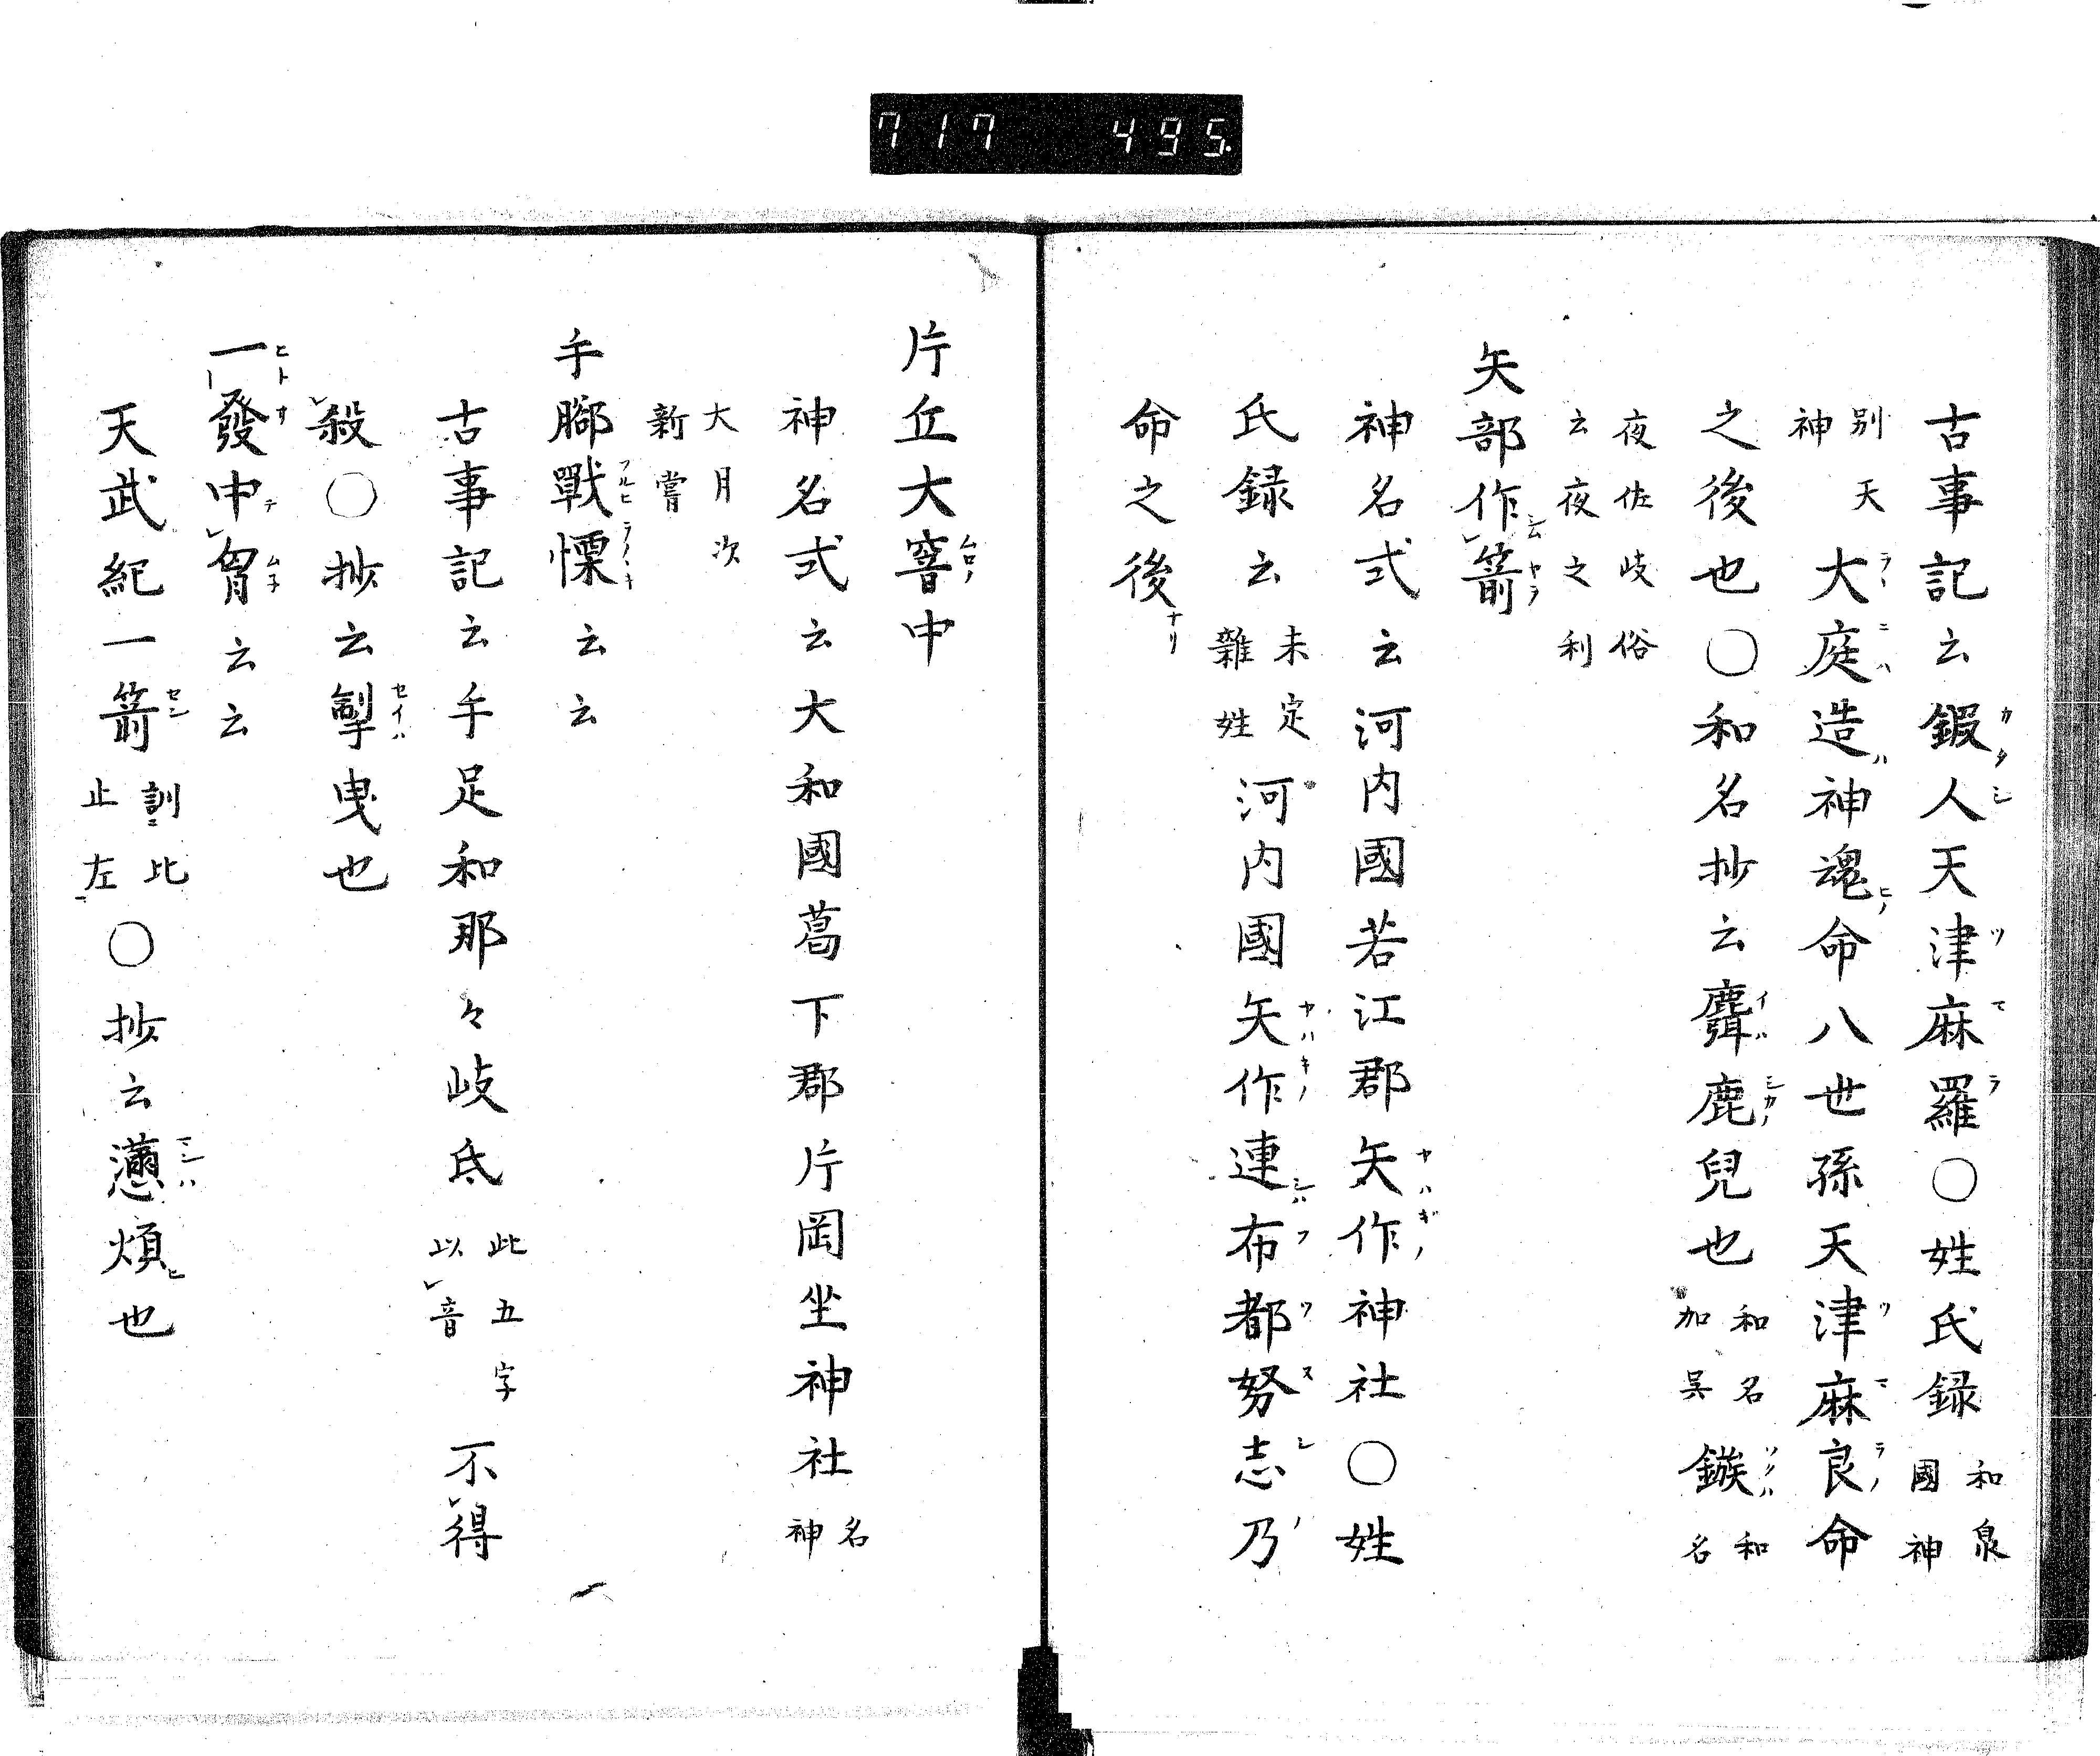 717 495
古事記云鍜人天津麻羅〇姓氏録和泉國神
別天神大庭造神魂命八世孫天津麻良命
之後也〇和名抄云麛鹿兒也和名加呉鏃和名
夜佐岐俗云夜之利
矢部作箭
神名式云河内國若江郡矢作神社〇姓
氏録云未定雜姓河内國矢作連布都努志乃
命之後
片丘大窨中
神名式云大和國葛下郡片岡坐神社名神
大月次新嘗
手脚戰慄云云
古事記云手足和那々岐氐此五字以音不得
殺〇抄云掣曳也
一發中胷云云
天武紀一箭訓比止左〇抄云懣煩也